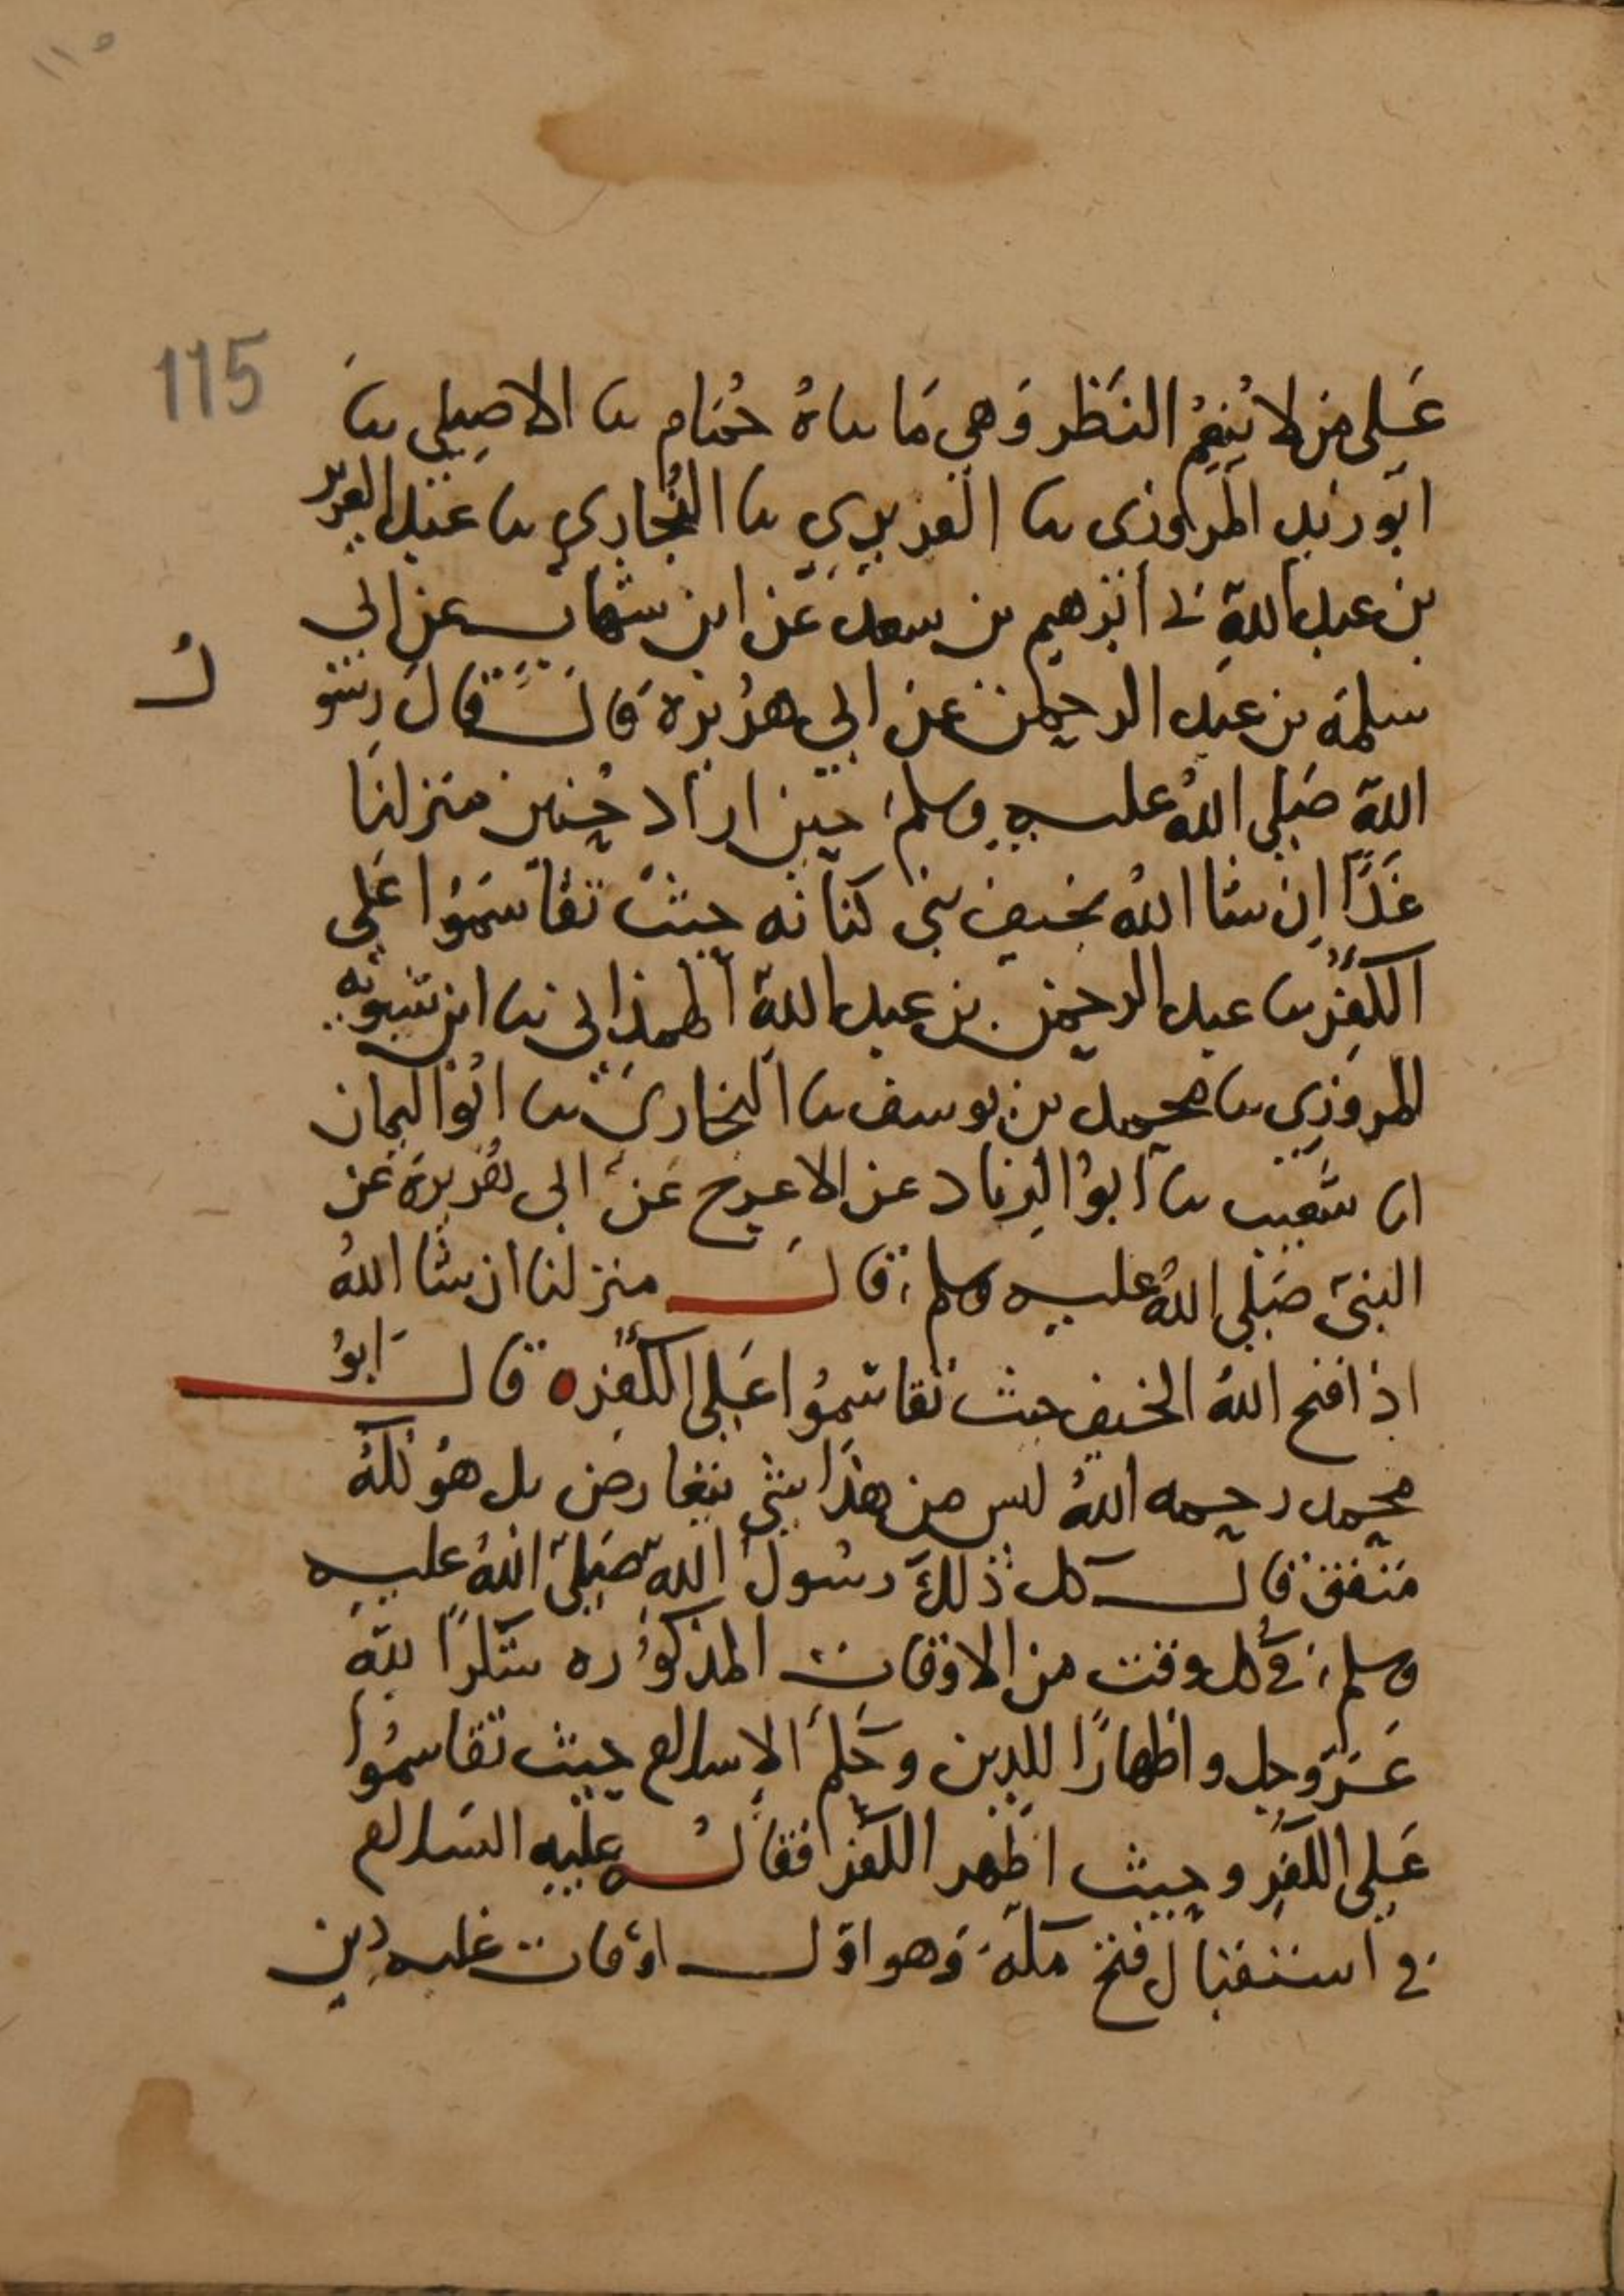 ١١٥
115
عَلى من لا يُنعِمُ النَظر وَهي مَا ساهُ حُمَام سا الاصِيلي سا
ابو زيد المروزى سا الفربري سا البُخاري سا عبد العزيز
بن عبد الله نى ابرهيم بن سعد عَن ابن شهاب عن ابي
سلمة بن عبد الرحمن عن ابي هُريرة قال قال رسو
لُ
اللهِ صَلى اللهُ عليه وسلم حين اراد حُنين منزلنا
غَدًا اِن شا اللهُ بخيف بني كنانه حيث تقاسَمُوا عَلى
الكُفر سا عبد الرحمن بن عبد الله الهمذانى سا ابن شبويه
المروزي سا محمد بن يوسف سا البخاري سا ابُو اليمان
انا شعيب سا ابوُ الزناد عن الاعرج عَن ابى هُريرة عَن
النبيّ صَلى اللهُ عليه وسلم قال منزلنا ان شا اللهُ
اذا فتح اللهُ الخيف حيث تقاسَمُوا عَلى الكُفره قال ابوُ
محمد رحمه اللهُ ليس من هذا شي يتعارض بل هُو كلهُ
متفق قال كل ذلكَ رسُول اللهِ صَلى اللهُ عليه
وسلم في كل وقت من الاوقات المذكوُره شكرًا لله
عَزّ وجل واظهارًا للدين وحَكمَ الاسلام حيث تقاسمُوا
عَلى الكُفرِ وحيث اظهر الكفر فقالُ عليه السلام
في استقبال فتح مكة وَهو اوّل اوْقات غلبه دين